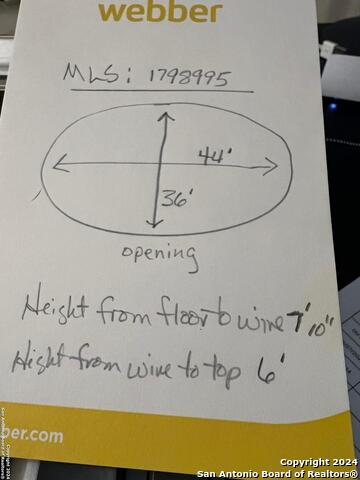 webber
MLS: 1798995
44'
36'
opening
Height from floor to wire 7'10"
Hight from wire to top 6'
ber.com
Copyright 2024
San Antonio Board of Realtors®
Copyright 2024
San Antonio Board of Realtors®